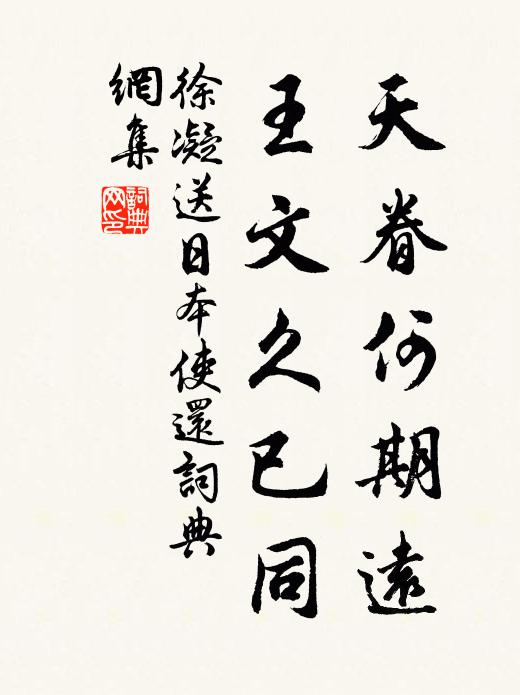 天眷何期遠
王文久已同
徐凝送日本使還詞典
網集
詞典
网印